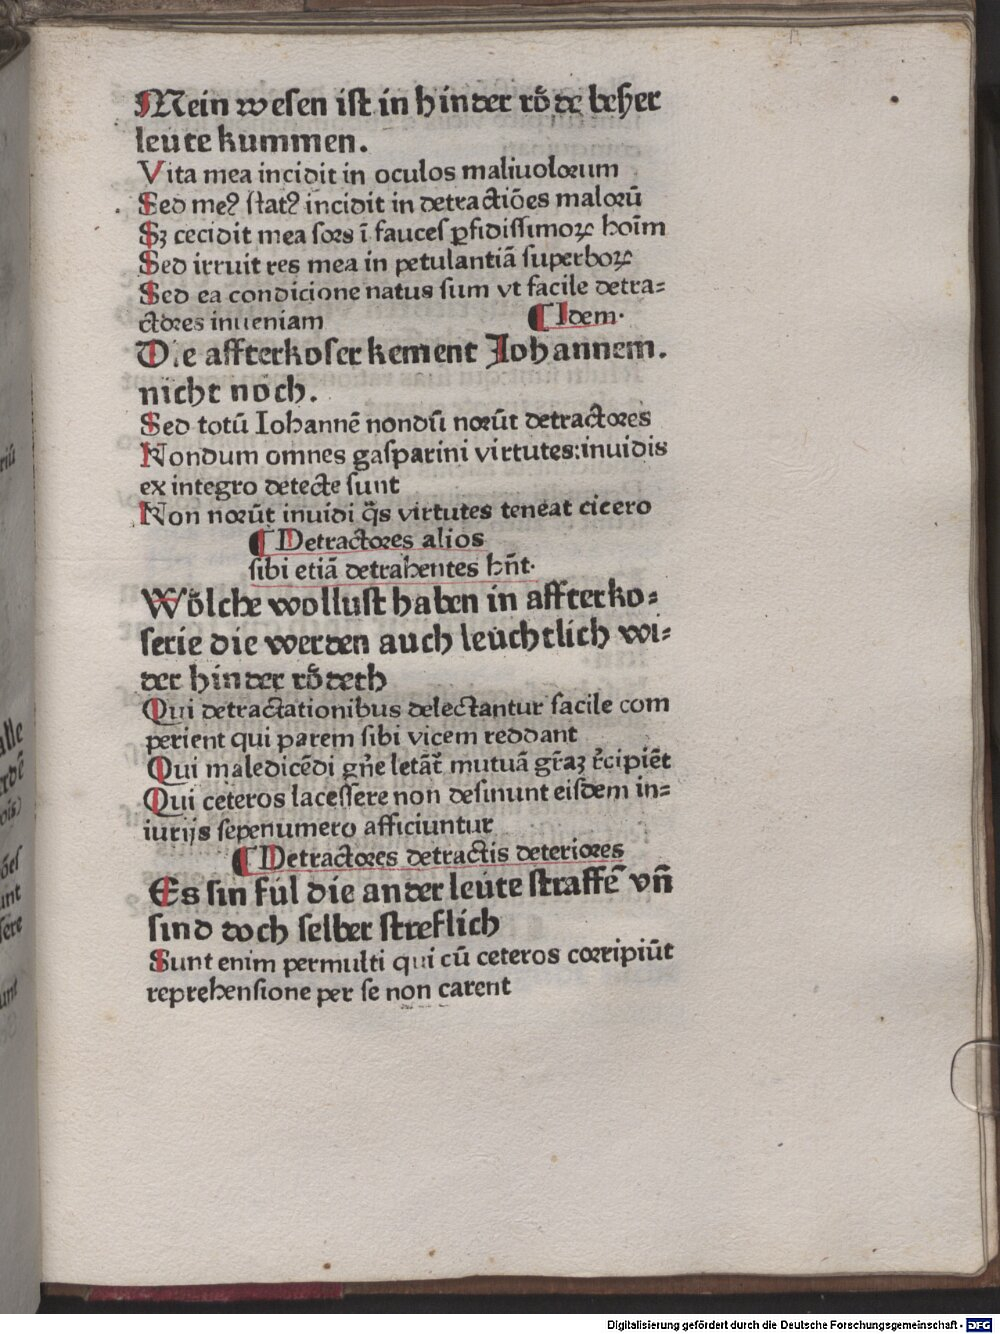 Mein wesen ist in hinder rőde beßer
leute kummen.
Vita mea incidit in oculos maliuoloꝝum
Sed meꝰ statꝰ incidit in detractiões maloꝛū
Sꝫ cecidit mea foꝛs ī fauces ꝑfidissimoꝝ hoīm
Sed irruit res mea in petulantiā superboꝝ
Sed ea condicione natus sum vt facile detra⸗
ctoꝛes inueniam
¶ Idem·
Die affterkoser kement Johannem.
nicht noch.
Sed totū Iohannē nondū noꝛūt detractoꝛes
Nondum omnes gasparini virtutes: inuidis
ex integro detecte sunt
Non noꝛūt inuidi q̄s virtutes teneat cicero
¶ Detractoꝛes alios
sibi etiā detrahentes hn̄t·
Wőlche wollust haben in affterko⸗
serie die werden auch leuchtlich wi⸗
der hinder rődeth
Qui detractationibus delectantur facile com
perient qui parem sibi vicem reddant
Qui maledicēdi gn̄e letāt̄ mutuā gr̄aꝫ r̄cipiēt
Qui ceteros lacessere non desinunt eisdem in⸗
iurijs sepenumero afficiuntur
¶ Detractoꝛes detractis deterioꝛes
Es sin fūl die ander leute straffē vn̄
sind doch selber streflich
Sunt enim permulti qui cū ceteros coꝛripiūt
reprehensione per se non carent
Digitalisierung gefördert durch die Deutsche Forschungsgemeinschaft - DFG